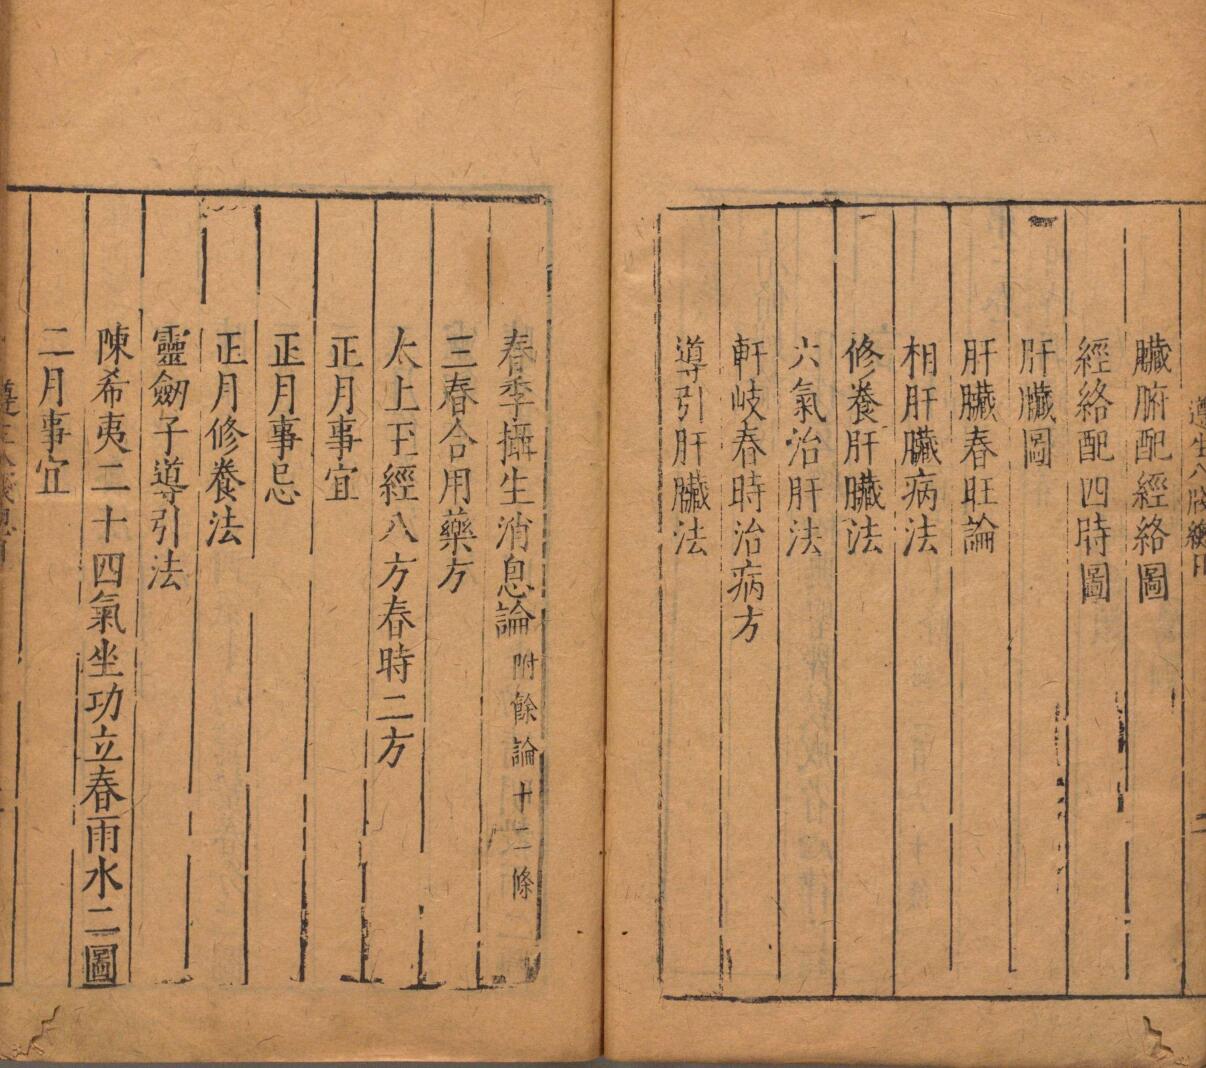 遵生八牋總目
臟腑配經絡圖
經絡配四時圖
肝臟圖
肝臟春旺論
相肝臟病法
修養肝臟法
六氣治肝法
軒岐春時治病方
導引肝臟法
春季攝生消息論 附餘論十二條
三春合用藥方
太上玉經八方春時二方
正月事宜
正月事忌
正月修養法
靈劒子導引法
陳希夷二十四氣坐功立春雨水二圖
二月事宜